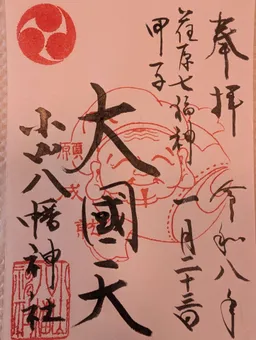 奉拝
令和八年
一月二十三日
荏原七福神
甲子
大國天
小山八幡神社